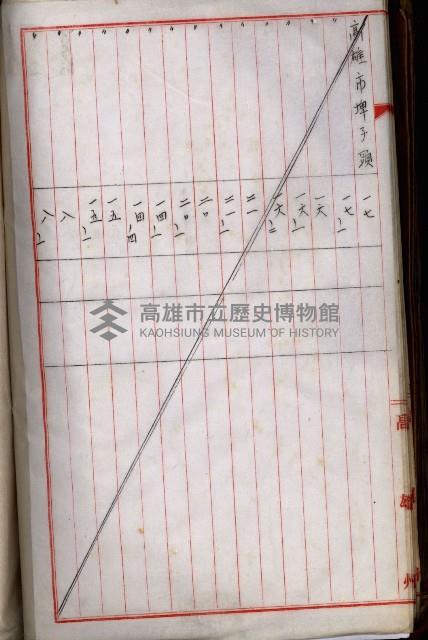 高雄市埤子頭
一七
一七ノ一
一六
一六ノ一
一六ノ二
二一
二一ノ一
二〇
二〇ノ一
一四ノ一
一四ノ四
一五
一五ノ一
八
八ノ一
高雄市立歷史博物館
KAOHSIUNG MUSEUM OF HISTORY
高雄州